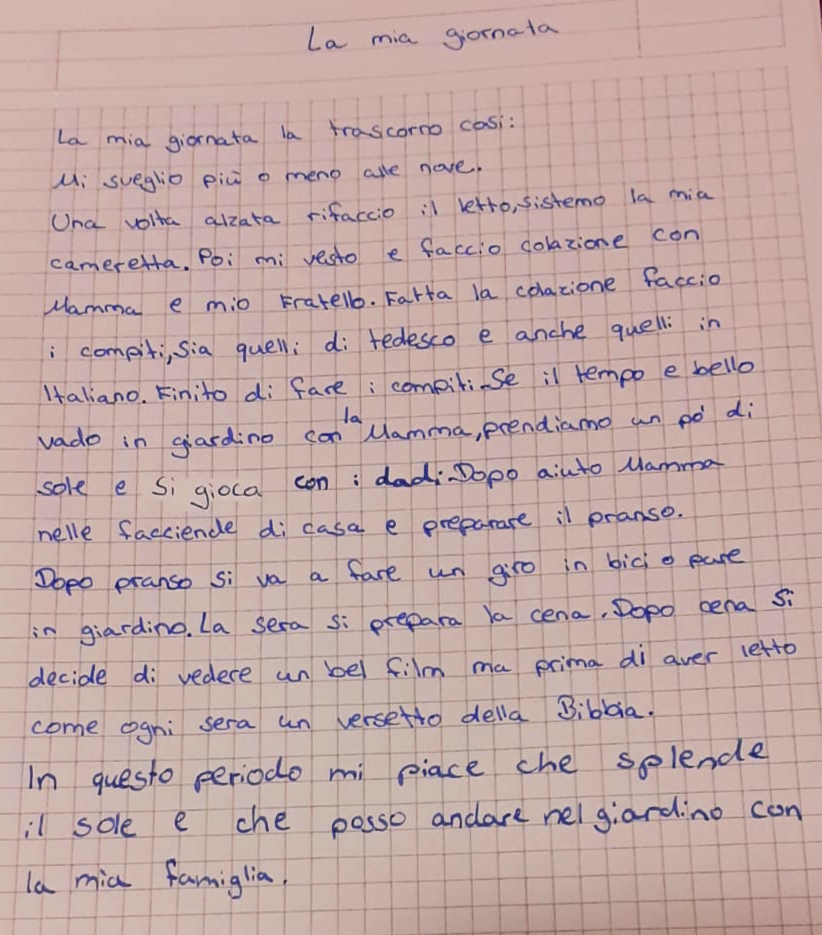 La mia giornata
La mia giornata la trascorro cosi:
Mi sveglio più o meno alle nove.
Una volta alzata rifaccio il letto,sistemo la mia
cameretta. Poi mi vesto e faccio colazione con
Mamma e mio Fratello. Fatta la colazione faccio
i compiti,sia quelli di tedesco e anche quelli in
Italiano. Finito di fare i compiti. Se il tempo e bello
vado in giardino con la Mamma,prendiamo un pó di
sole e si gioca con i dadi. Dopo aiuto Mamma
nelle facciende di casa e preparare il pranso.
Dopo pranso si va a fare un giro in bici o pure
in giardino. La sera si prepara la cena. Dopo cena si
decide di vedere un bel film ma prima di aver letto
come ogni sera un versetto della Bibbia.
In questo periodo mi piace che splende
il sole e che posso andare nel giardino con
la mia famiglia.